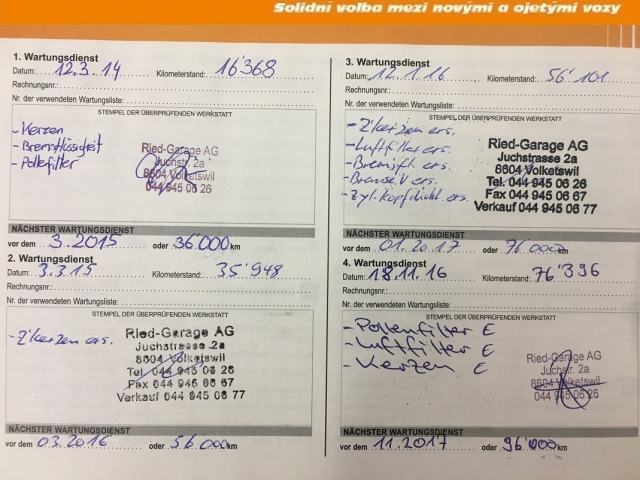 Solidní volba mezi novými a ojetými vozy
1. Wartungsdienst
Datum: 12.3.14 Kilometerstand: 16'368
Rechnungsnr.:
Nr. der verwendeten Wartungsliste:
STEMPEL DER ÜBERPRÜFENDEN WERKSTATT
- Kerzen
- Bremsflüssigkeit
- Pollefilter
Ried-Garage AG
Juchstr. 2a
8604 Volketswil
044 945 06 26
NÄCHSTER WARTUNGSDIENST
vor dem 3.2015 oder 36'000 km
2. Wartungsdienst
Datum: 3.3.15 Kilometerstand: 35'948
Rechnungsnr.:
Nr. der verwendeten Wartungsliste:
STEMPEL DER ÜBERPRÜFENDEN WERKSTATT
- Z'kerzen ers.
Ried-Garage AG
Juchstrasse 2a
8604 Volketswil
Tel. 044 945 06 26
Fax 044 945 06 67
Verkauf 044 945 06 77
NÄCHSTER WARTUNGSDIENST
vor dem 03.2016 oder 56'000 km
3. Wartungsdienst
Datum: 12.1.16 Kilometerstand: 56'101
Rechnungsnr.:
Nr. der verwendeten Wartungsliste:
STEMPEL DER ÜBERPRÜFENDEN WERKSTATT
- Z'kerzen ers.
- Luftfilter ers.
- Bremsfl. ers.
- Bremse V ers.
- Zyl. Kopfdicht. ers.
Ried-Garage AG
Juchstrasse 2a
8604 Volketswil
Tel. 044 945 06 26
Fax 044 945 06 67
Verkauf 044 945 06 77
NÄCHSTER WARTUNGSDIENST
vor dem 01.2017 oder 76'000 km
4. Wartungsdienst
Datum: 18.11.16 Kilometerstand: 76'396
Rechnungsnr.:
Nr. der verwendeten Wartungsliste:
STEMPEL DER ÜBERPRÜFENDEN WERKSTATT
- Pollenfilter E
- Luftfilter E
- Kerzen E
Ried-Garage AG
Juchstr. 2a
8604 Volketswil
044 945 06 26
NÄCHSTER WARTUNGSDIENST
vor dem 11.2017 oder 96'000 km